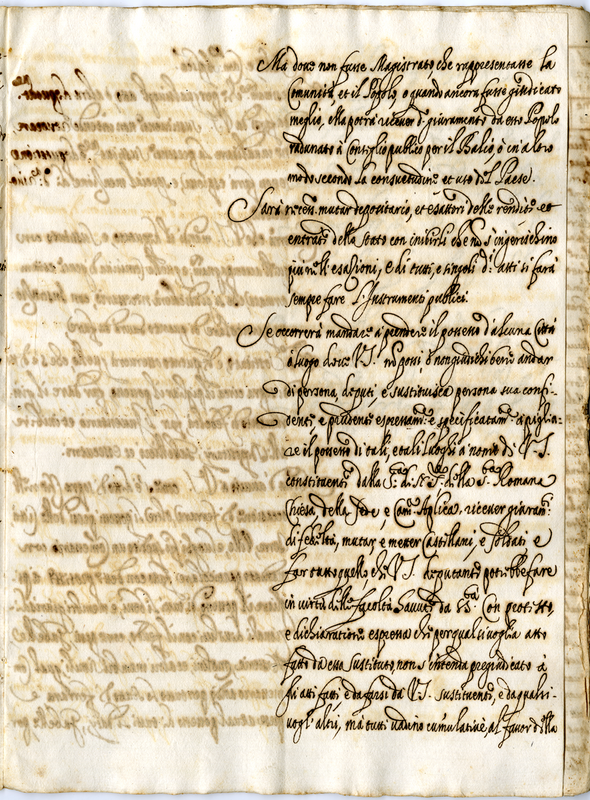 Ma dove non fusse Magistrato, che rappresentasse la
Comunità, et il Popolo, o quando ancora fusse giudicato
meglio, ella potrà ricever il giuramento da esso Popolo
radunato à Consiglio publico per il Balio, ò in altro
modo secondo la consuetudine et uso del Paese.
Sarà necess. mutar depositario, et esattori delle rendite et
entrate dello stato con inibirli che non s'ingerischino
più nell'esazioni, e di tutti, e singoli di atti si farà
sempre fare l'Instrumenti publici.
Se occorrerà mandare à prendere il possesso d'alcuna Città
ò luogo dove V.S. non possi ò non giudichi bene andar
di persona, deputi e sustituisca persona sua confi-
dente e prudente espressam.e e specificatam.e à piglia-
re il possesso di tali, e tali luoghi à nome di V.S.
constituente dalla S.tà di N. S. della S.ta Romana
Chiesa, della Sede, e Cam.a Aplica, ricever giuram.ti
di fedeltà, mutar, e metter Castellani, e soldati e
far tutto quello che V.S. deputante potrebbe fare
in virtù delle facoltà da S. S.tà Con protesto,
e dichiaratione espressa che per qualsivoglia atto
fatto da esso sustituto non s'intenda pregiudicato à
gli atti fatti e da farsi da V.S. sustituente, e da qualsi-
vogl'altri, ma tutti vadino cumulativè al favor della